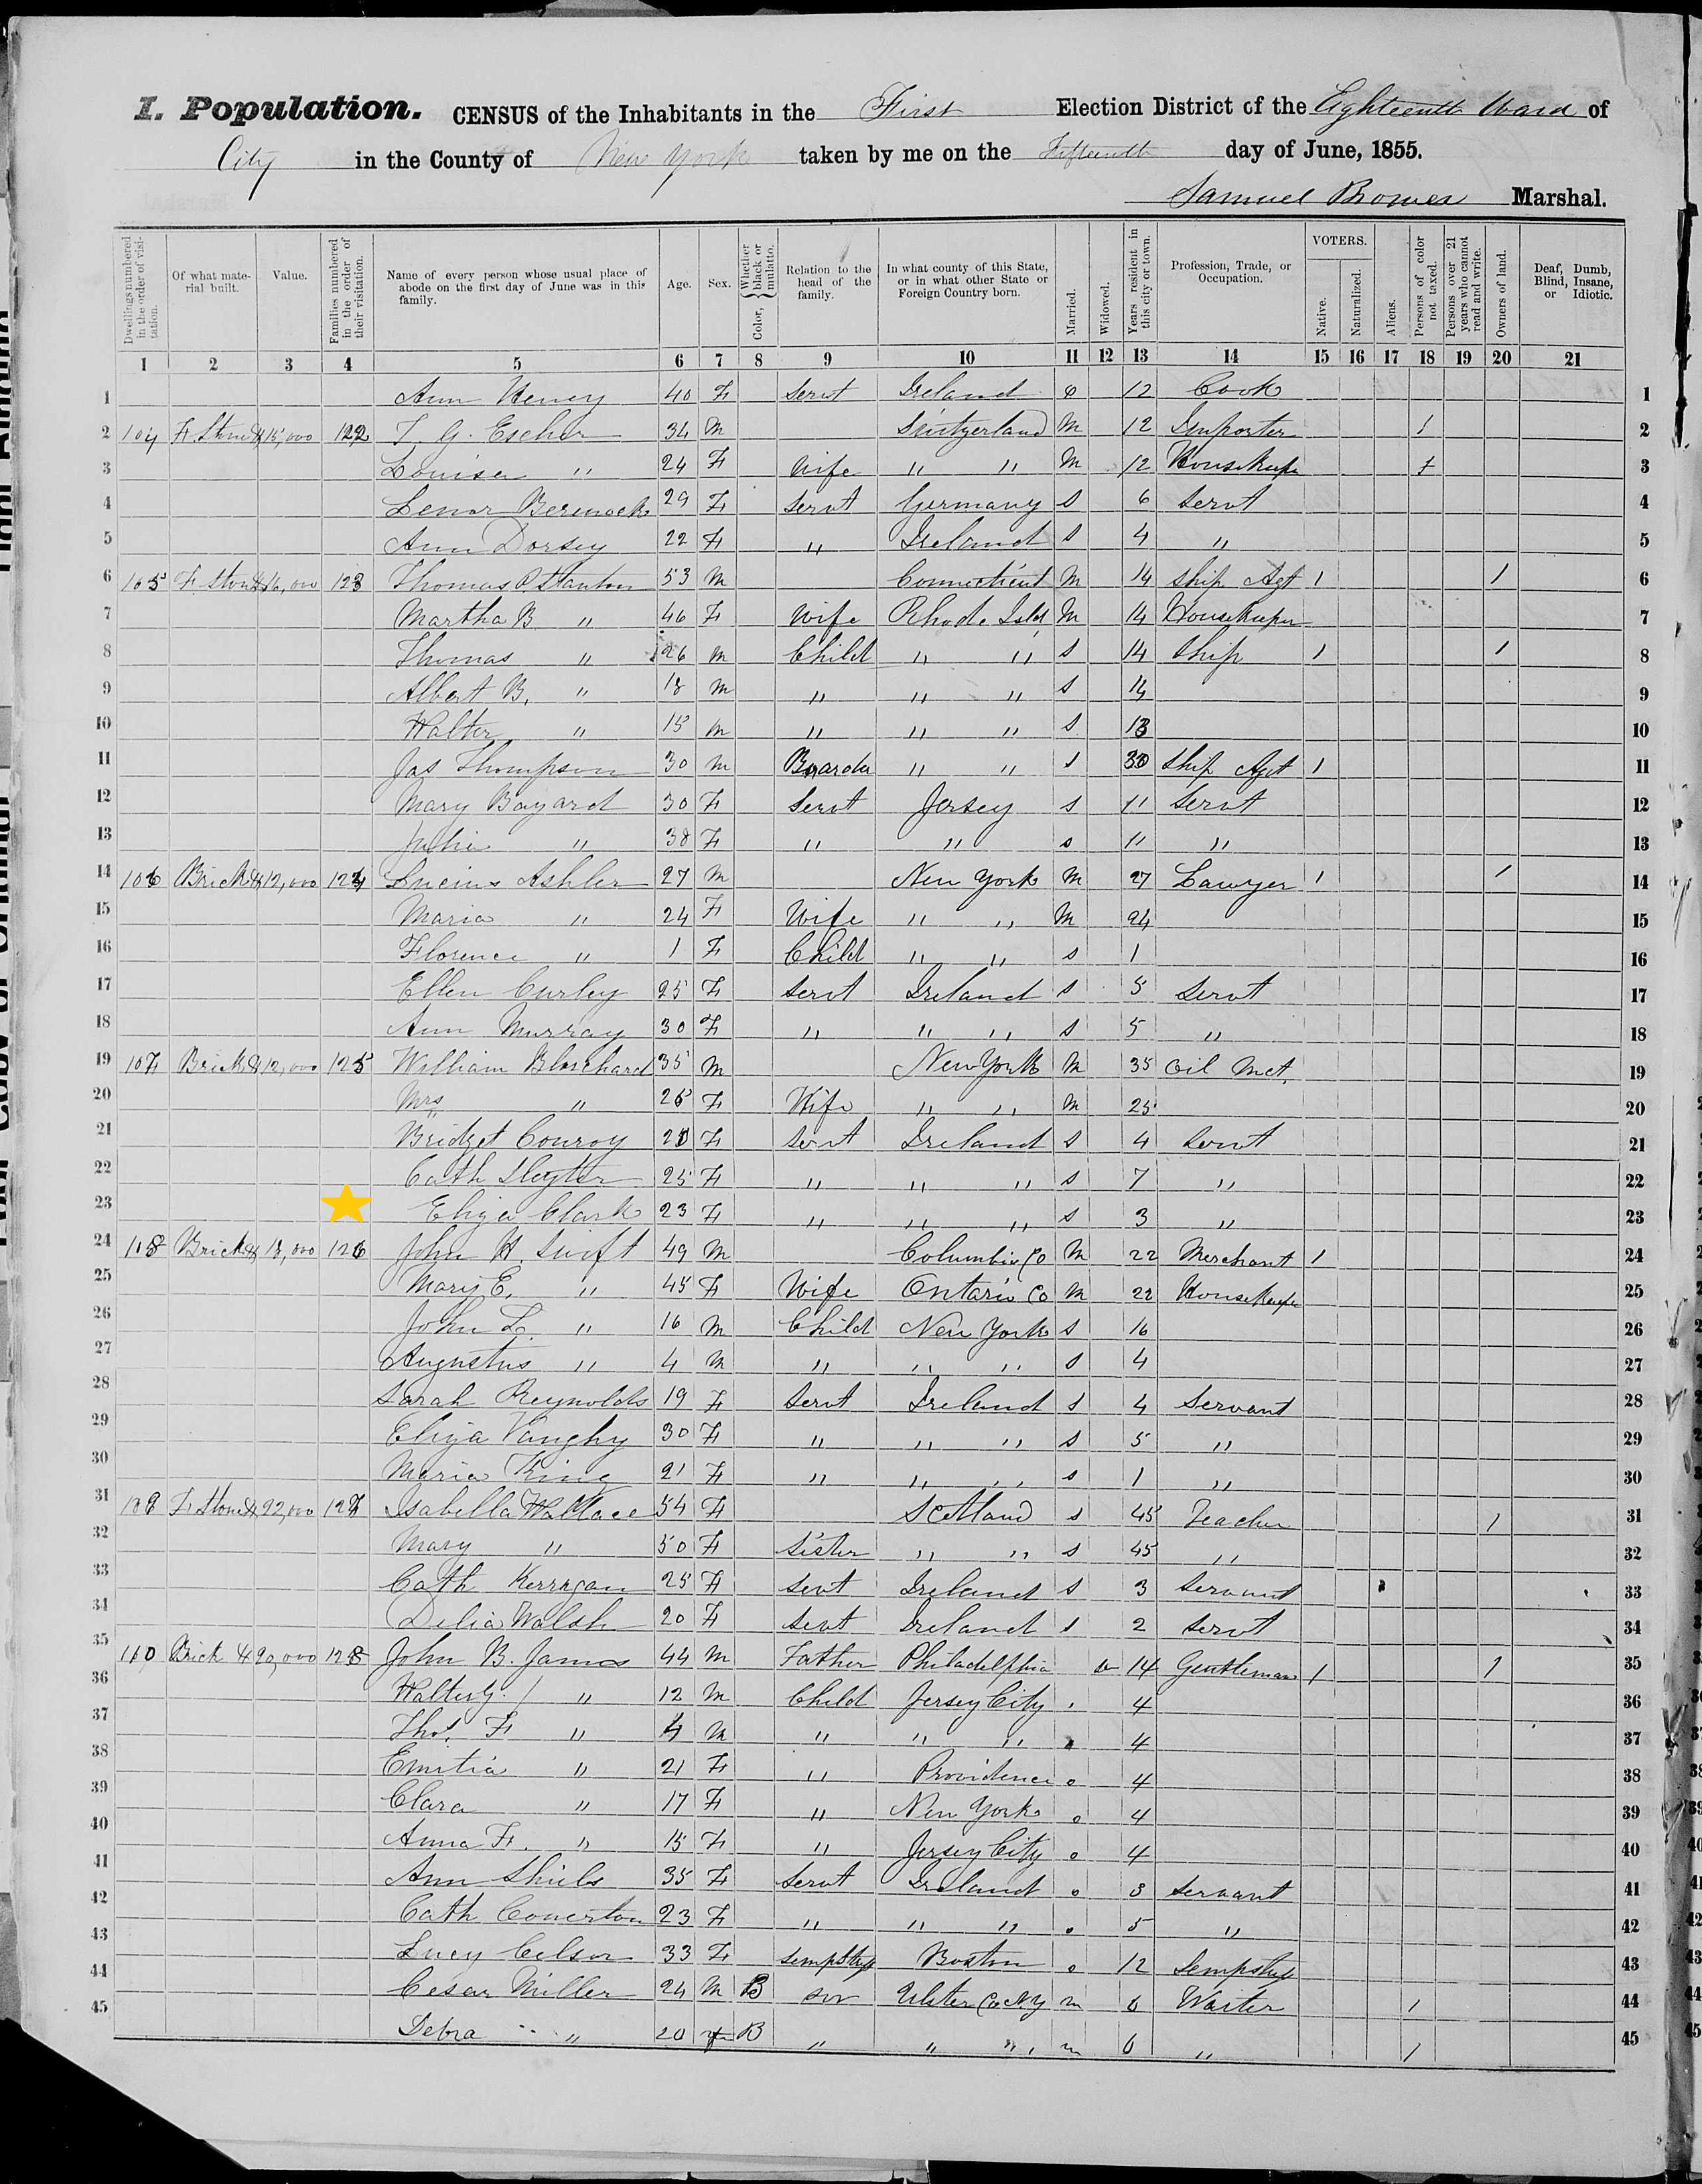 I. Population. CENSUS of the Inhabitants in the First Election District of the Eighteenth Ward of
City in the County of New York taken by me on the Fifteenth day of June, 1855.
Samuel Marshal.
Dwellings numbered in the order of visitation. Of what material built. Value. Families numbered in the order of their visitation. Name of every person whose usual place of abode on the first day of June was in this family. Age. Sex. Color, Whether black or mulatto. Relation to the head of the family. In what county of this State, or in what other State or Foreign Country born. Married. Widowed. Years resident in this city or town. Profession, Trade, or Occupation. VOTERS. Native. Naturalized. Aliens. Persons of color not taxed. Persons over 21 years who cannot read and write. Owners of land. Deaf, Dumb, Blind, Insane, or Idiotic.
1 2 3 4 5 6 7 8 9 10 11 12 13 14 15 16 17 18 19 20 21
1 Ann 40 F Servt Ireland 12 Cook 1
2 104 F Stone $15,000 122 T. G. Escher 34 M Switzerland M 12 Importer 1 2
3 Louisa " 24 F Wife " " M 12 Housekeeper 1 3
4 Lenor 29 F Servt Germany S 6 Servt 4
5 Ann Dorsey 22 F " Ireland S 4 " 5
6 105 F Stone 123 Thomas Stanton 53 M Connecticut M 14 Ship Agt 1 1 6
7 Martha B " 46 F Wife Rhode Isld M 14 Housekeeper 7
8 Thomas " 26 M Child " " S 14 Ship 1 1 8
9 Albert B. " 18 M " " " S 14 9
10 Walter " 15 M " " " S 13 10
11 Jas Thompson 30 M Boarder " " S 30 Ship Agt 1 11
12 Mary Bayard 30 F Servt Jersey S 11 Servt 12
13 Julia " 38 F " " S 11 " 13
14 106 Brick $12,000 124 Lucius Ashler 27 M New York M 27 Lawyer 1 1 14
15 Maria " 24 F Wife " " M 24 15
16 Florence " 1 F Child " " S 1 16
17 Ellen Curley 25 F Servt Ireland S 5 Servt 17
18 Ann Murray 30 F " " " S 5 " 18
19 107 Brick $12,000 125 William Blanchard 35 M New York M 35 Oil Mct. 19
20 Mrs " 25 F Wife " " M 25 20
21 Bridget Conroy F Servt Ireland S 4 Servt 21
22 Cath 25 F " " " S 7 " 22
23 Eliza Clark 23 F " " " S 3 " 23
24 108 Brick 126 John H. Swift 49 M Columbia Co M 22 Merchant 1 24
25 Mary E. " 45 F Wife Ontario Co M 22 Housekeeper 25
26 John L. " 16 M Child New York S 16 26
27 Augustus " 4 M " " " S 4 27
28 Sarah Reynolds 19 F Servt Ireland S 4 Servant 28
29 Eliza 30 F " " " S 5 " 29
30 Maria King 21 F " " " S 1 " 30
31 109 F Stone $22,000 127 Isabella Wallace 54 F Scotland S 45 Teacher 1 31
32 Mary " 50 F Sister " " S 45 " 32
33 Cath Kerrigan 25 F Servt Ireland S 3 Servant 33
34 Delia Walsh 20 F Servt Ireland S 2 Servt 34
35 110 Brick $20,000 128 John B. James 44 M Father Philadelphia 14 Gentleman 1 1 35
36 Walter G. " 12 M Child Jersey City 4 36
37 Thos. F " 4 M " " " 4 37
38 " 21 F " Providence 4 38
39 Clara " 17 F " New York 4 39
40 Anna F. " 15 F " Jersey City 4 40
41 Ann Shiels 35 F Servt Ireland 3 Servant 41
42 Cath 23 F " " " 5 " 42
43 Lucy 33 F Boston 12 43
44 Cesar Miller 24 M B Ulster Co NY m 6 Waiter 1 44
45 Debra " 20 F B " " " m 6 " 1 45